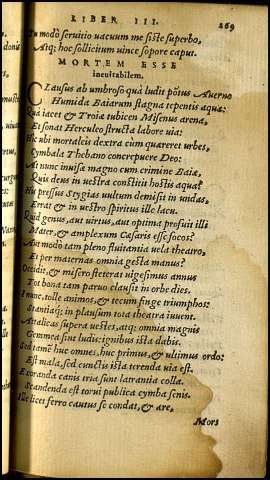 LIBER III. 269
Tu modò seruitio uacuum me siste superbo,
Atq; hoc sollicitum uince sopore caput.
MORTEM ESSE
ineuitabilem.
CLausus ab umbroso quà ludit põtus Auerno
Humida Baiarum stagna tepentis aqua:
Quà iacet & Troiæ tubicen Misenus arena,
Et sonat Herculeo structa labore uia:
Hic ubi mortaleis dextra cum quæreret urbes,
Cymbala Thebano concrepuere Deo:
At nunc inuisæ magno cum crimine Baiæ,
Quis deus in uestra constitit hostis aqua?
Hic pressus Stygias uultum demisit in undas,
Errat & in uestro spiritus ille lacu.
Quid genus, aut uirtus, aut optima profuit illi
Mater, & amplexum Cæsaris esse focos?
Aut modò tam pleno fluitantia uela theatro,
Et per maternas omnia gesta manus?
Occidit, & misero steterat uigesimus annus
Tot bona tam paruo clausit in orbe dies.
I nunc, tolle animos, & tecum finge triumphos:
Stantiaq; in plausum tota theatra iuuent.
Attalicas supera uestes, atq; omnia magnis
Gemmea sint ludis: ignibus ista dabis.
Sed tamē huc omnes, huc primus, & ultimus ordo:
Est mala, sed cunctis ista terenda uia est.
Exoranda canis tria sunt latrantia colla.
Scandenda est torui publica cymba senis.
Ille licet ferro cautus se condat, & ære,
Mors